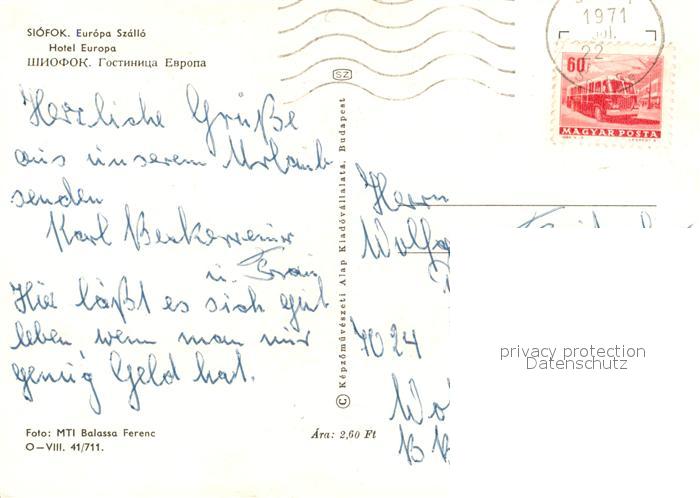 SIÓFOK. Európa Szálló
Hotel Europa
ШИОФОК. Гостиница Европа
Herzliche Grüße
aus unserem Urlaub
senden
Karl
u. Frau
Hier läßt es sich gut
leben wenn man nur
genug Geld hat.
Foto: MTI Balassa Ferenc
O—VIII. 41/711.
Ára: 2,60 Ft
SZ
© Képzőművészeti Alap Kiadóvállalata, Budapest
1971
22
60f
MAGYAR POSTA
Herrn
Wolfg
7024
privacy protection
Datenschutz